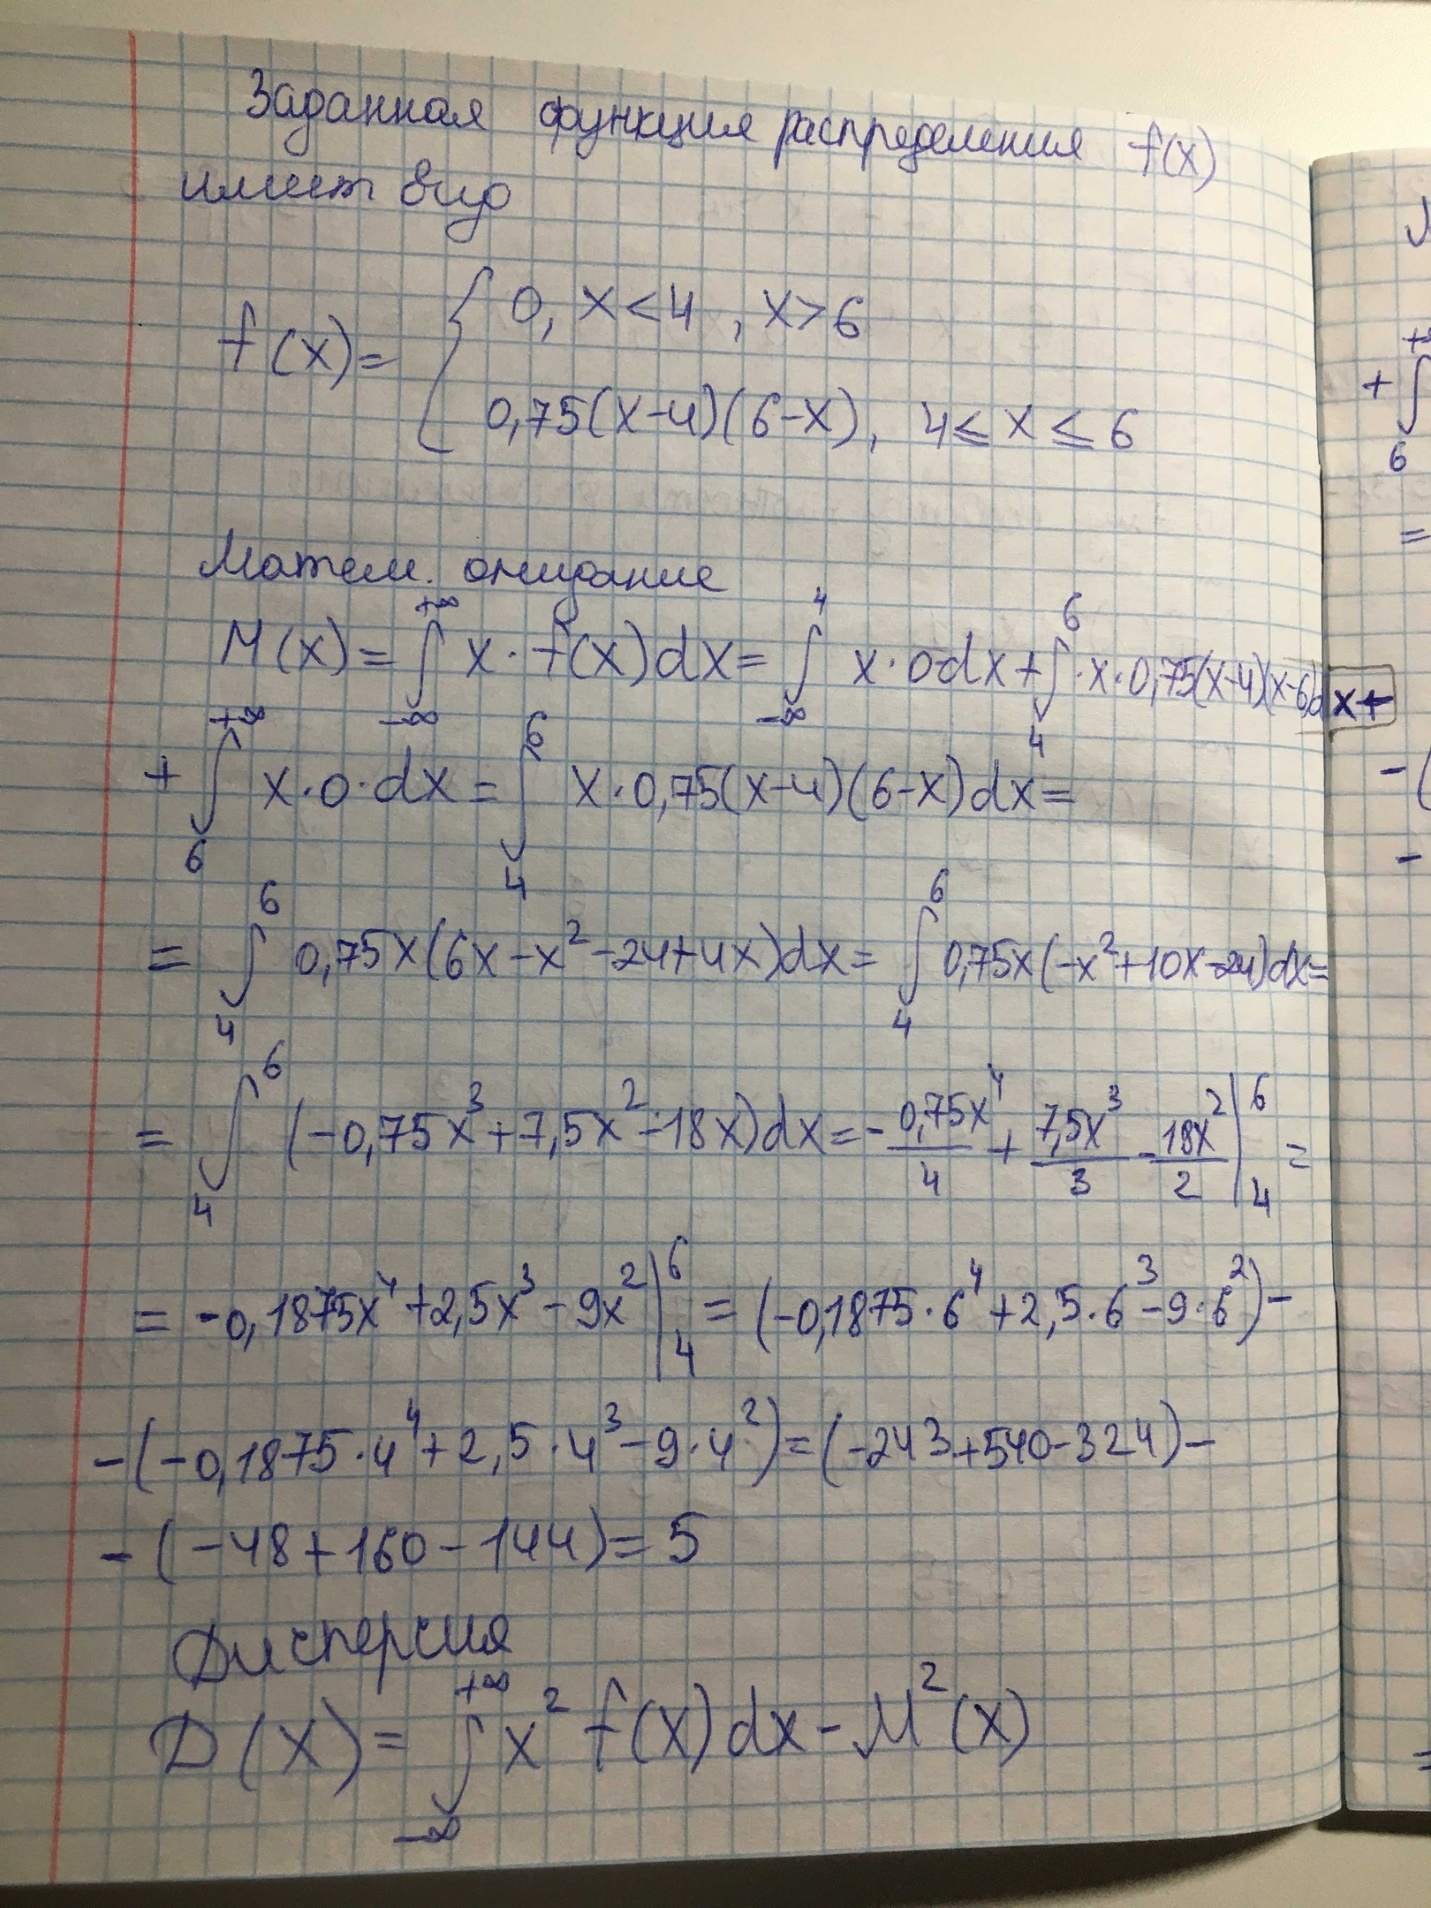 Заданная функция распределения f(x)
имеет вид
f(x) = { 0, x<4 , x>6
0,75(x-4)(6-x), 4 ≤ x ≤ 6
Матем. ожидание
M(x) = ∫_{-∞}^{+∞} x · f(x)dx = ∫_{-∞}^{4} x · 0dx + ∫_{4}^{6} · x · 0,75(x-4)(x-6)dx +
+ ∫_{6}^{+∞} x · 0 · dx = ∫_{4}^{6} x · 0,75(x-4)(6-x)dx =
= ∫_{4}^{6} 0,75x(6x - x² - 24 + 4x)dx = ∫_{4}^{6} 0,75x(-x² + 10x - 24)dx =
= ∫_{4}^{6} (-0,75x³ + 7,5x² - 18x)dx = - 0,75x⁴/4 + 7,5x³/3 - 18x²/2 |_{4}^{6} =
= -0,1875x⁴ + 2,5x³ - 9x² |_{4}^{6} = (-0,1875 · 6⁴ + 2,5 · 6³ - 9 · 6²) -
- (-0,1875 · 4⁴ + 2,5 · 4³ - 9 · 4²) = (-243 + 540 - 324) -
- (-48 + 160 - 144) = 5
Дисперсия
D(X) = ∫_{-∞}^{+∞} x² f(x)dx - M²(x)
+∞
+ ∫
6
=
-(
-
=